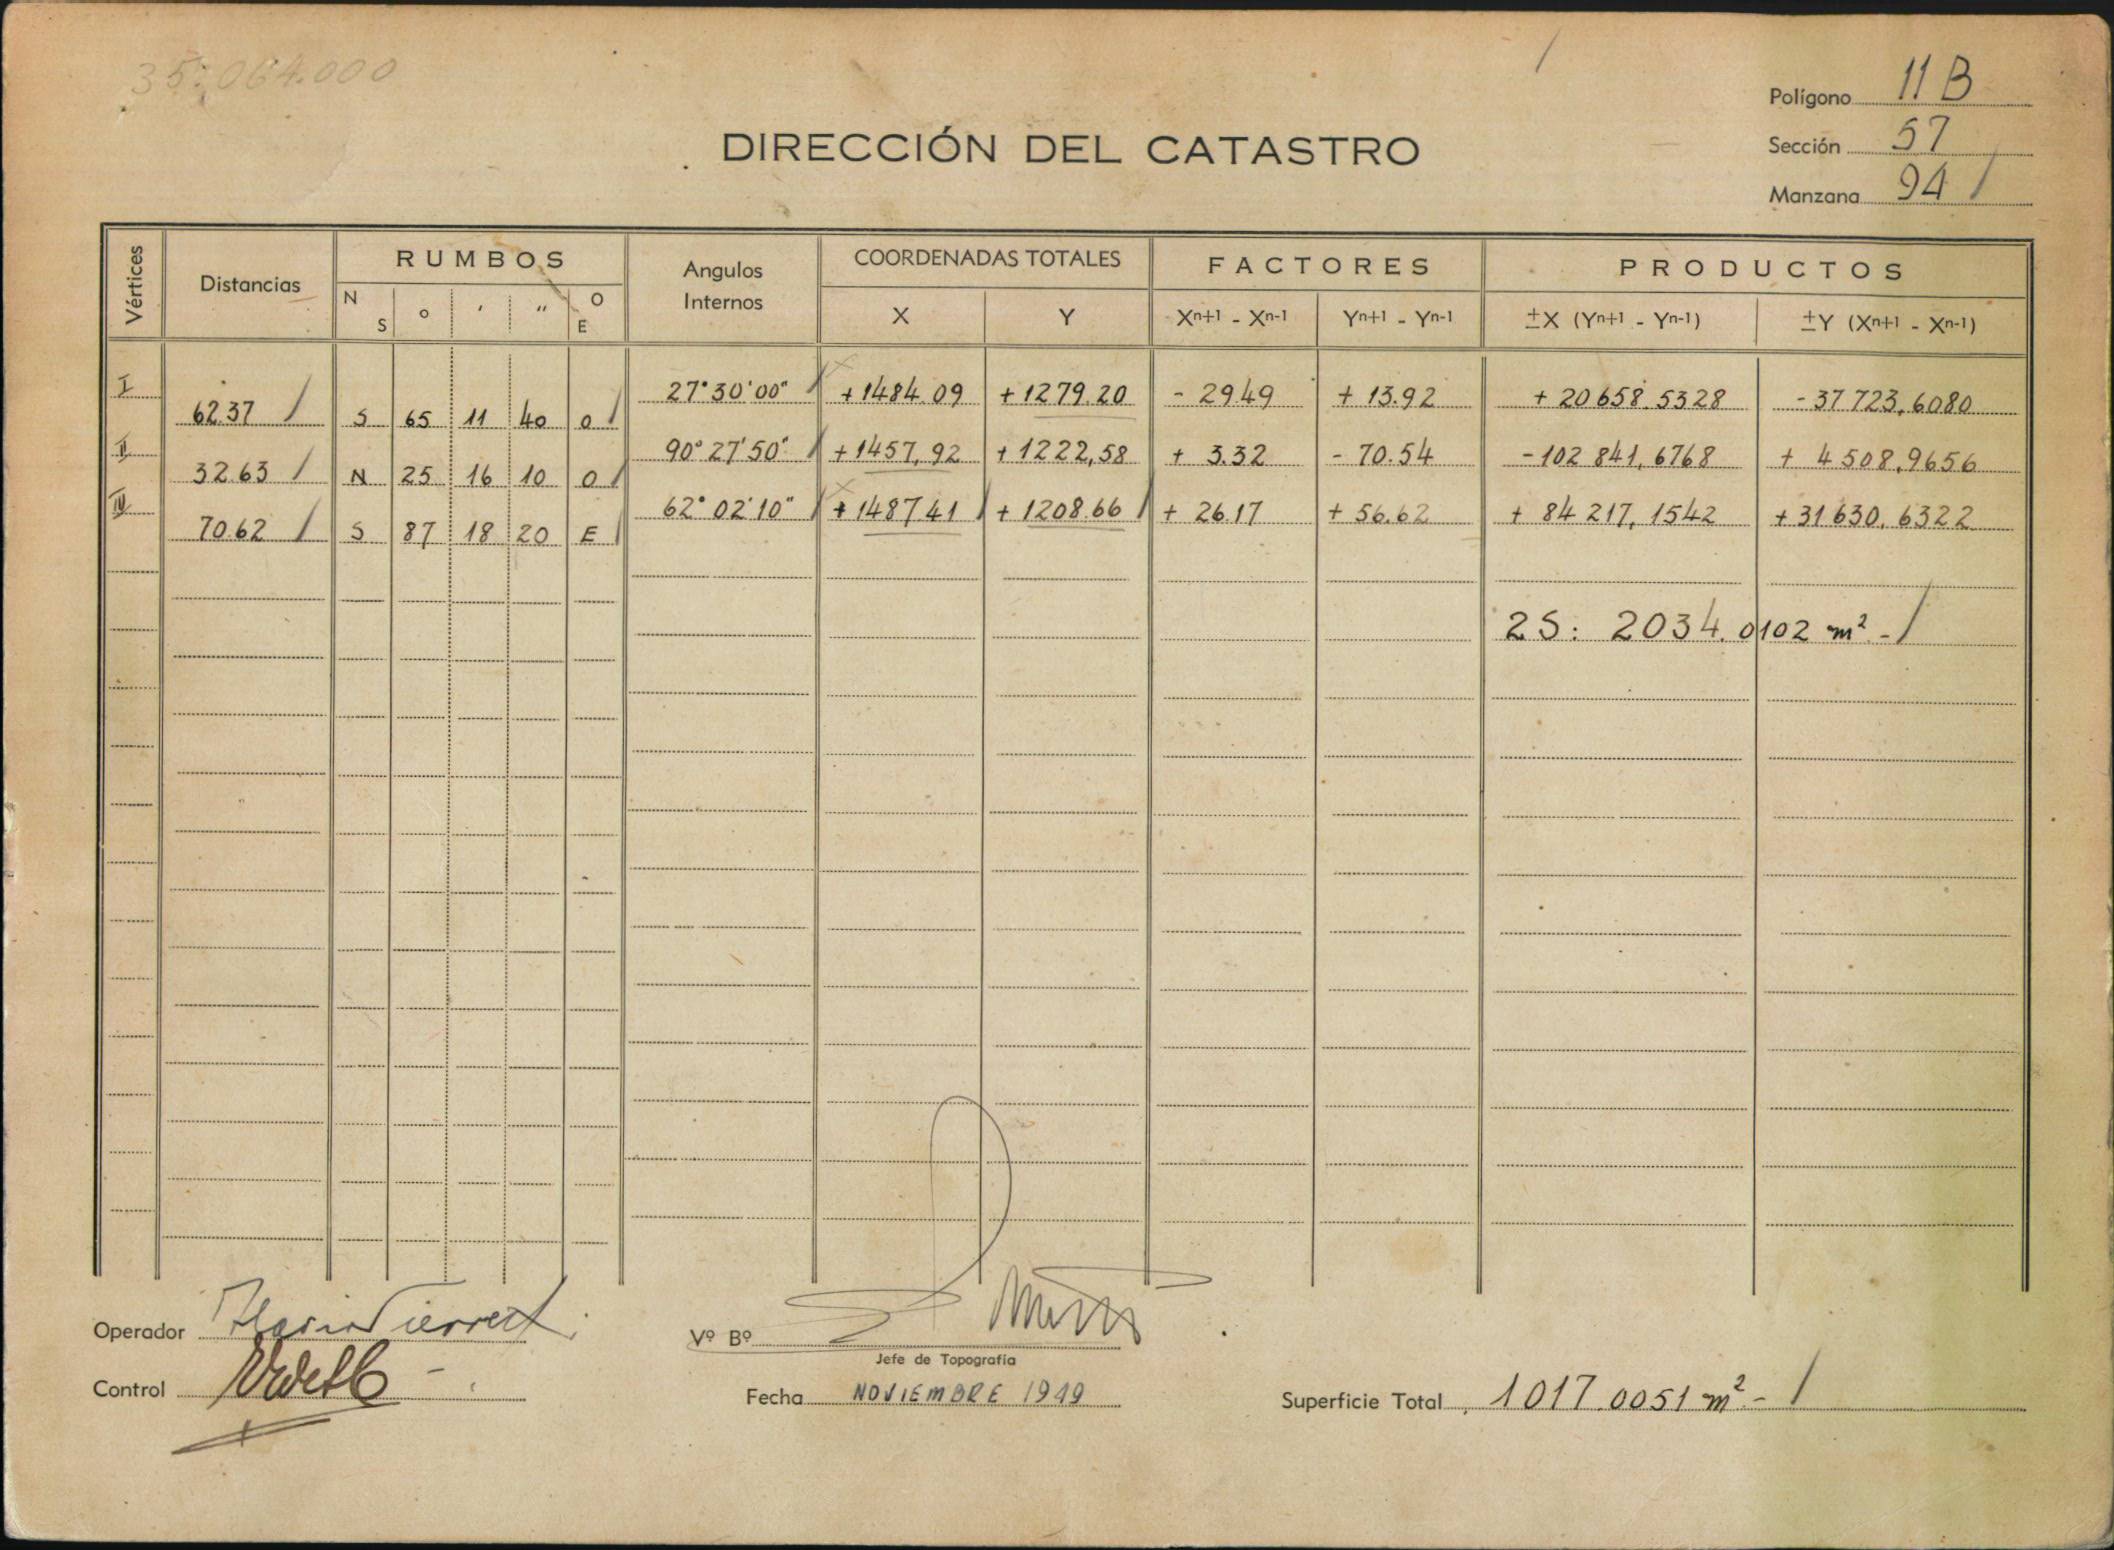 35:064.000
Polígono 11 B
DIRECCIÓN DEL CATASTRO
Sección 57
Manzana 94 /
Vértices Distancias RUMBOS Angulos Internos COORDENADAS TOTALES FACTORES PRODUCTOS
N S o ' " O E X Y Xⁿ⁺¹ - Xⁿ⁻¹ Yⁿ⁺¹ - Yⁿ⁻¹ ±X (Yⁿ⁺¹ - Yⁿ⁻¹) ±Y (Xⁿ⁺¹ - Xⁿ⁻¹)
I 27°30'00" / +1484.09 +1279.20 - 29.49 + 13.92 + 20658.5328 - 37 723,6080
62.37 / S 65 11 40 O /
II 90°27'50" / +1457,92 +1222,58 + 3.32 - 70.54 -102 841,6768 + 4 508,9656
32.63 / N 25 16 10 O /
III 62°02'10" / +1487.41 / +1208.66 / + 26.17 + 56.62 + 84 217,1542 +31 630,6322
70.62 / S 87 18 20 E /
2S: 2034.0102 m² - /
Operador
Vº Bº
Jefe de Topografía
Control
Fecha NOVIEMBRE 1949
Superficie Total 1017.0051 m² - /